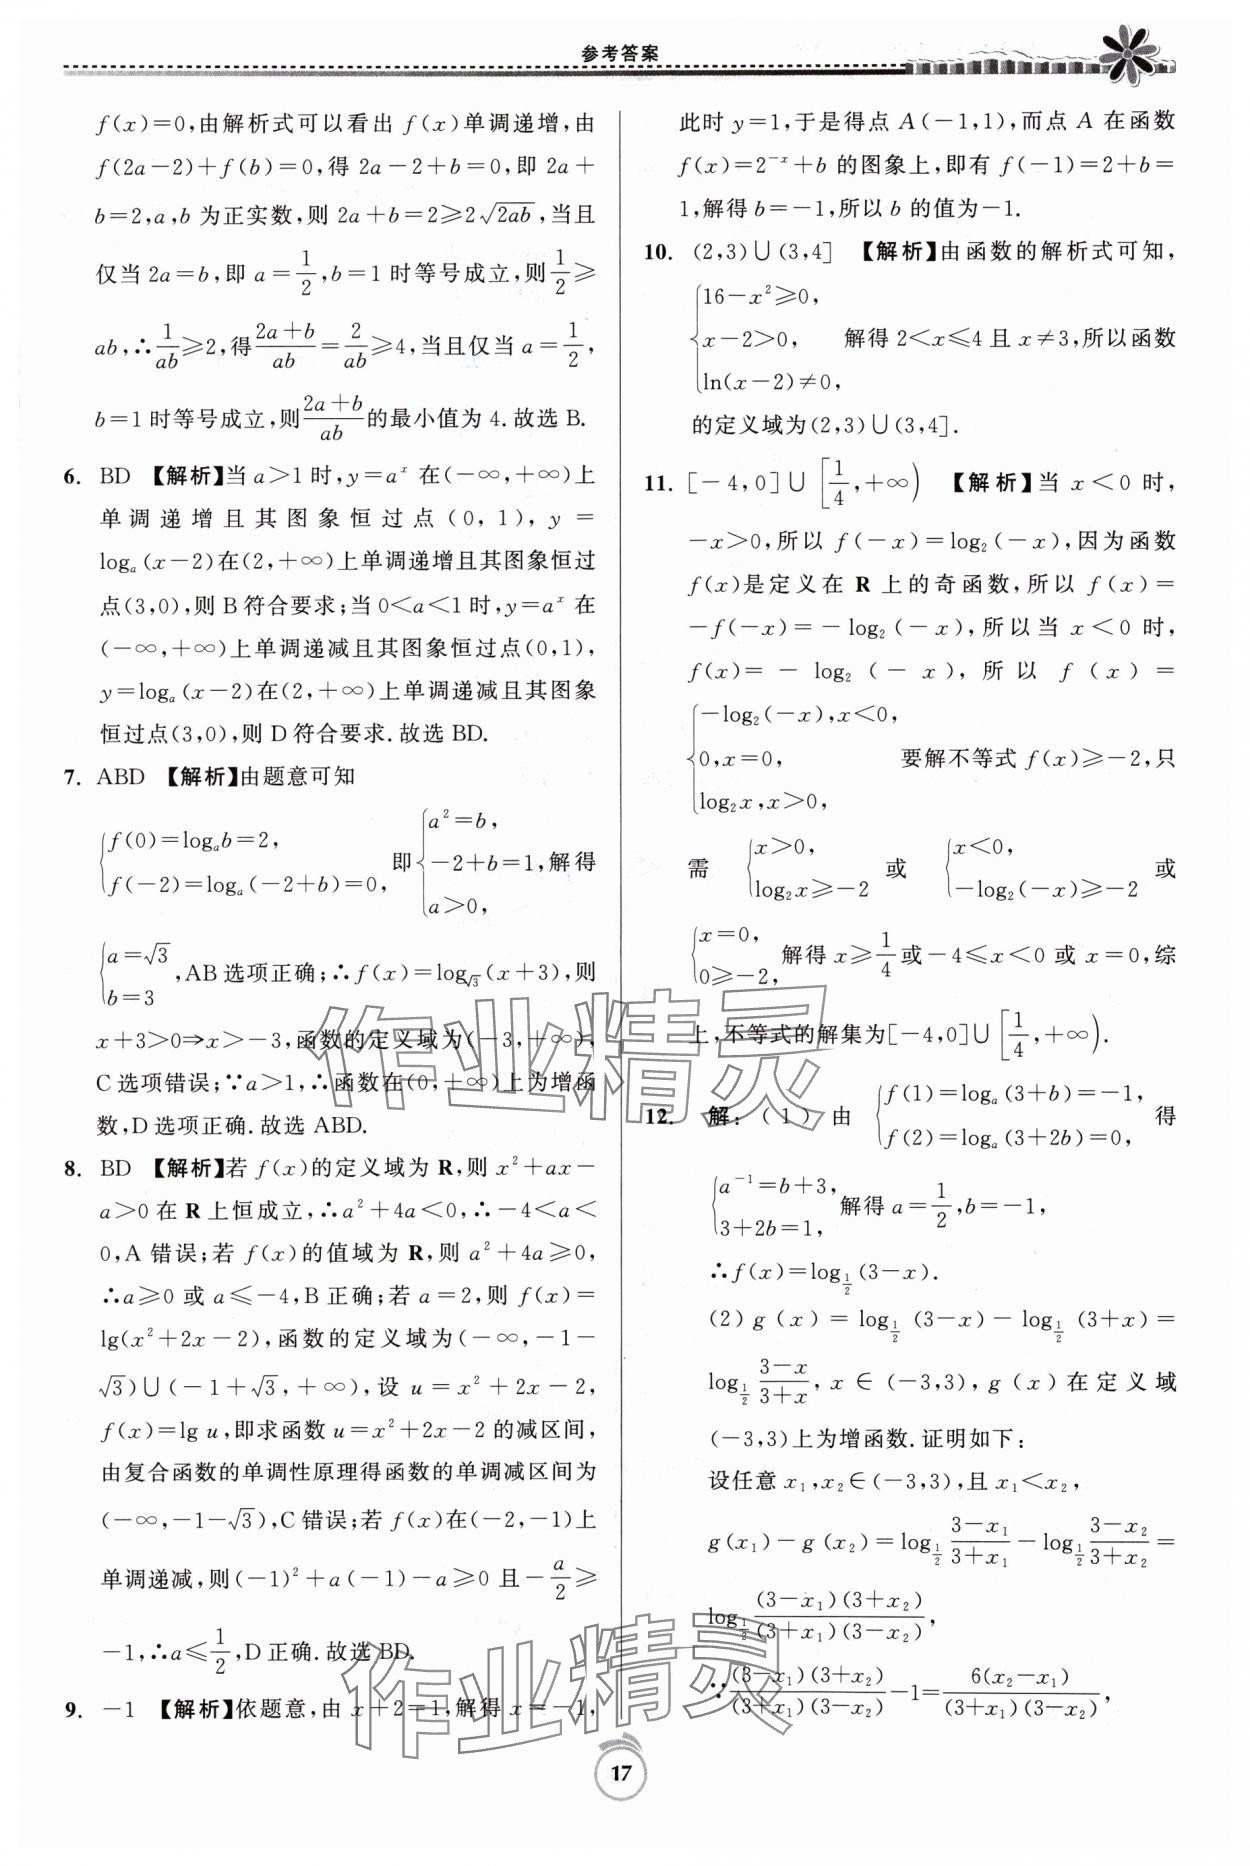 参考答案
f(x)=0,由解析式可以看出 f(x)单调递增,由
f(2a-2)+f(b)=0,得 2a-2+b=0,即 2a+
b=2,a,b 为正实数,则 2a+b=2≥2√(2ab),当且
仅当 2a=b,即 a=1/2,b=1 时等号成立,则1/2≥
ab,∴1/ab≥2,得(2a+b)/ab=2/ab≥4,当且仅当 a=1/2,
b=1 时等号成立,则(2a+b)/ab的最小值为 4.故选 B.
6. BD 【解析】当 a>1 时,y=aˣ 在(-∞,+∞)上
单调递增且其图象恒过点(0,1),y=
logₐ(x-2)在(2,+∞)上单调递增且其图象恒过
点(3,0),则 B 符合要求;当 0<a<1 时,y=aˣ 在
(-∞,+∞)上单调递减且其图象恒过点(0,1),
y=logₐ(x-2)在(2,+∞)上单调递减且其图象
恒过点(3,0),则 D 符合要求.故选 BD.
7. ABD 【解析】由题意可知
{f(0)=logₐb=2, f(-2)=logₐ(-2+b)=0, 即{a²=b, -2+b=1, a>0, 解得
{a=√3 b=3 ,AB 选项正确;∴f(x)=log_√3(x+3),则
x+3>0⇒x>-3,函数的定义域为(-3,+∞),
C 选项错误;∵a>1,∴函数在(0,+∞)上为增函
数,D 选项正确.故选 ABD.
8. BD 【解析】若 f(x)的定义域为 R,则 x²+ax-
a>0 在 R 上恒成立,∴a²+4a<0,∴-4<a<
0,A 错误;若 f(x)的值域为 R,则 a²+4a≥0,
∴a≥0 或 a≤-4,B 正确;若 a=2,则 f(x)=
lg(x²+2x-2),函数的定义域为(-∞,-1-
√3)∪(-1+√3,+∞),设 u=x²+2x-2,
f(x)=lg u,即求函数 u=x²+2x-2 的减区间,
由复合函数的单调性原理得函数的单调减区间为
(-∞,-1-√3),C 错误;若 f(x)在(-2,-1)上
单调递减,则(-1)²+a(-1)-a≥0 且-a/2≥
-1,∴a≤1/2,D 正确.故选 BD.
9. -1 【解析】依题意,由 x+2=1,解得 x=-1,
此时 y=1,于是得点 A(-1,1),而点 A 在函数
f(x)=2⁻ˣ+b 的图象上,即有 f(-1)=2+b=
1,解得 b=-1,所以 b 的值为-1.
10. (2,3)∪(3,4] 【解析】由函数的解析式可知,
{16-x²≥0,
x-2>0, 解得 2<x≤4 且 x≠3,所以函数
ln(x-2)≠0,
的定义域为(2,3)∪(3,4].
11. [-4,0]∪[1/4,+∞) 【解析】当 x<0 时,
-x>0,所以 f(-x)=log₂(-x),因为函数
f(x)是定义在 R 上的奇函数,所以 f(x)=
-f(-x)=-log₂(-x),所以当 x<0 时,
f(x)=-log₂(-x),所以 f(x)=
{-log₂(-x),x<0,
0,x=0, 要解不等式 f(x)≥-2,只
log₂x,x>0,
需 {x>0, log₂x≥-2 或 {x<0, -log₂(-x)≥-2 或
{x=0, 0≥-2, 解得 x≥1/4或-4≤x<0 或 x=0,综
上,不等式的解集为[-4,0]∪[1/4,+∞).
12. 解:(1)由 {f(1)=logₐ(3+b)=-1, f(2)=logₐ(3+2b)=0, 得
{a⁻¹=b+3, 3+2b=1, 解得 a=1/2,b=-1,
∴f(x)=log_(1/2)(3-x).
(2)g(x)=log_(1/2)(3-x)-log_(1/2)(3+x)=
log_(1/2) (3-x)/(3+x),x∈(-3,3),g(x)在定义域
(-3,3)上为增函数.证明如下:
设任意 x₁,x₂∈(-3,3),且 x₁<x₂,
g(x₁)-g(x₂)=log_(1/2) (3-x₁)/(3+x₁)-log_(1/2) (3-x₂)/(3+x₂)=
log_(1/2) (3-x₁)(3+x₂)/(3+x₁)(3-x₂),
∵(3-x₁)(3+x₂)/(3+x₁)(3-x₂)-1=6(x₂-x₁)/(3+x₁)(3-x₂),
作业精灵
作业精灵
17